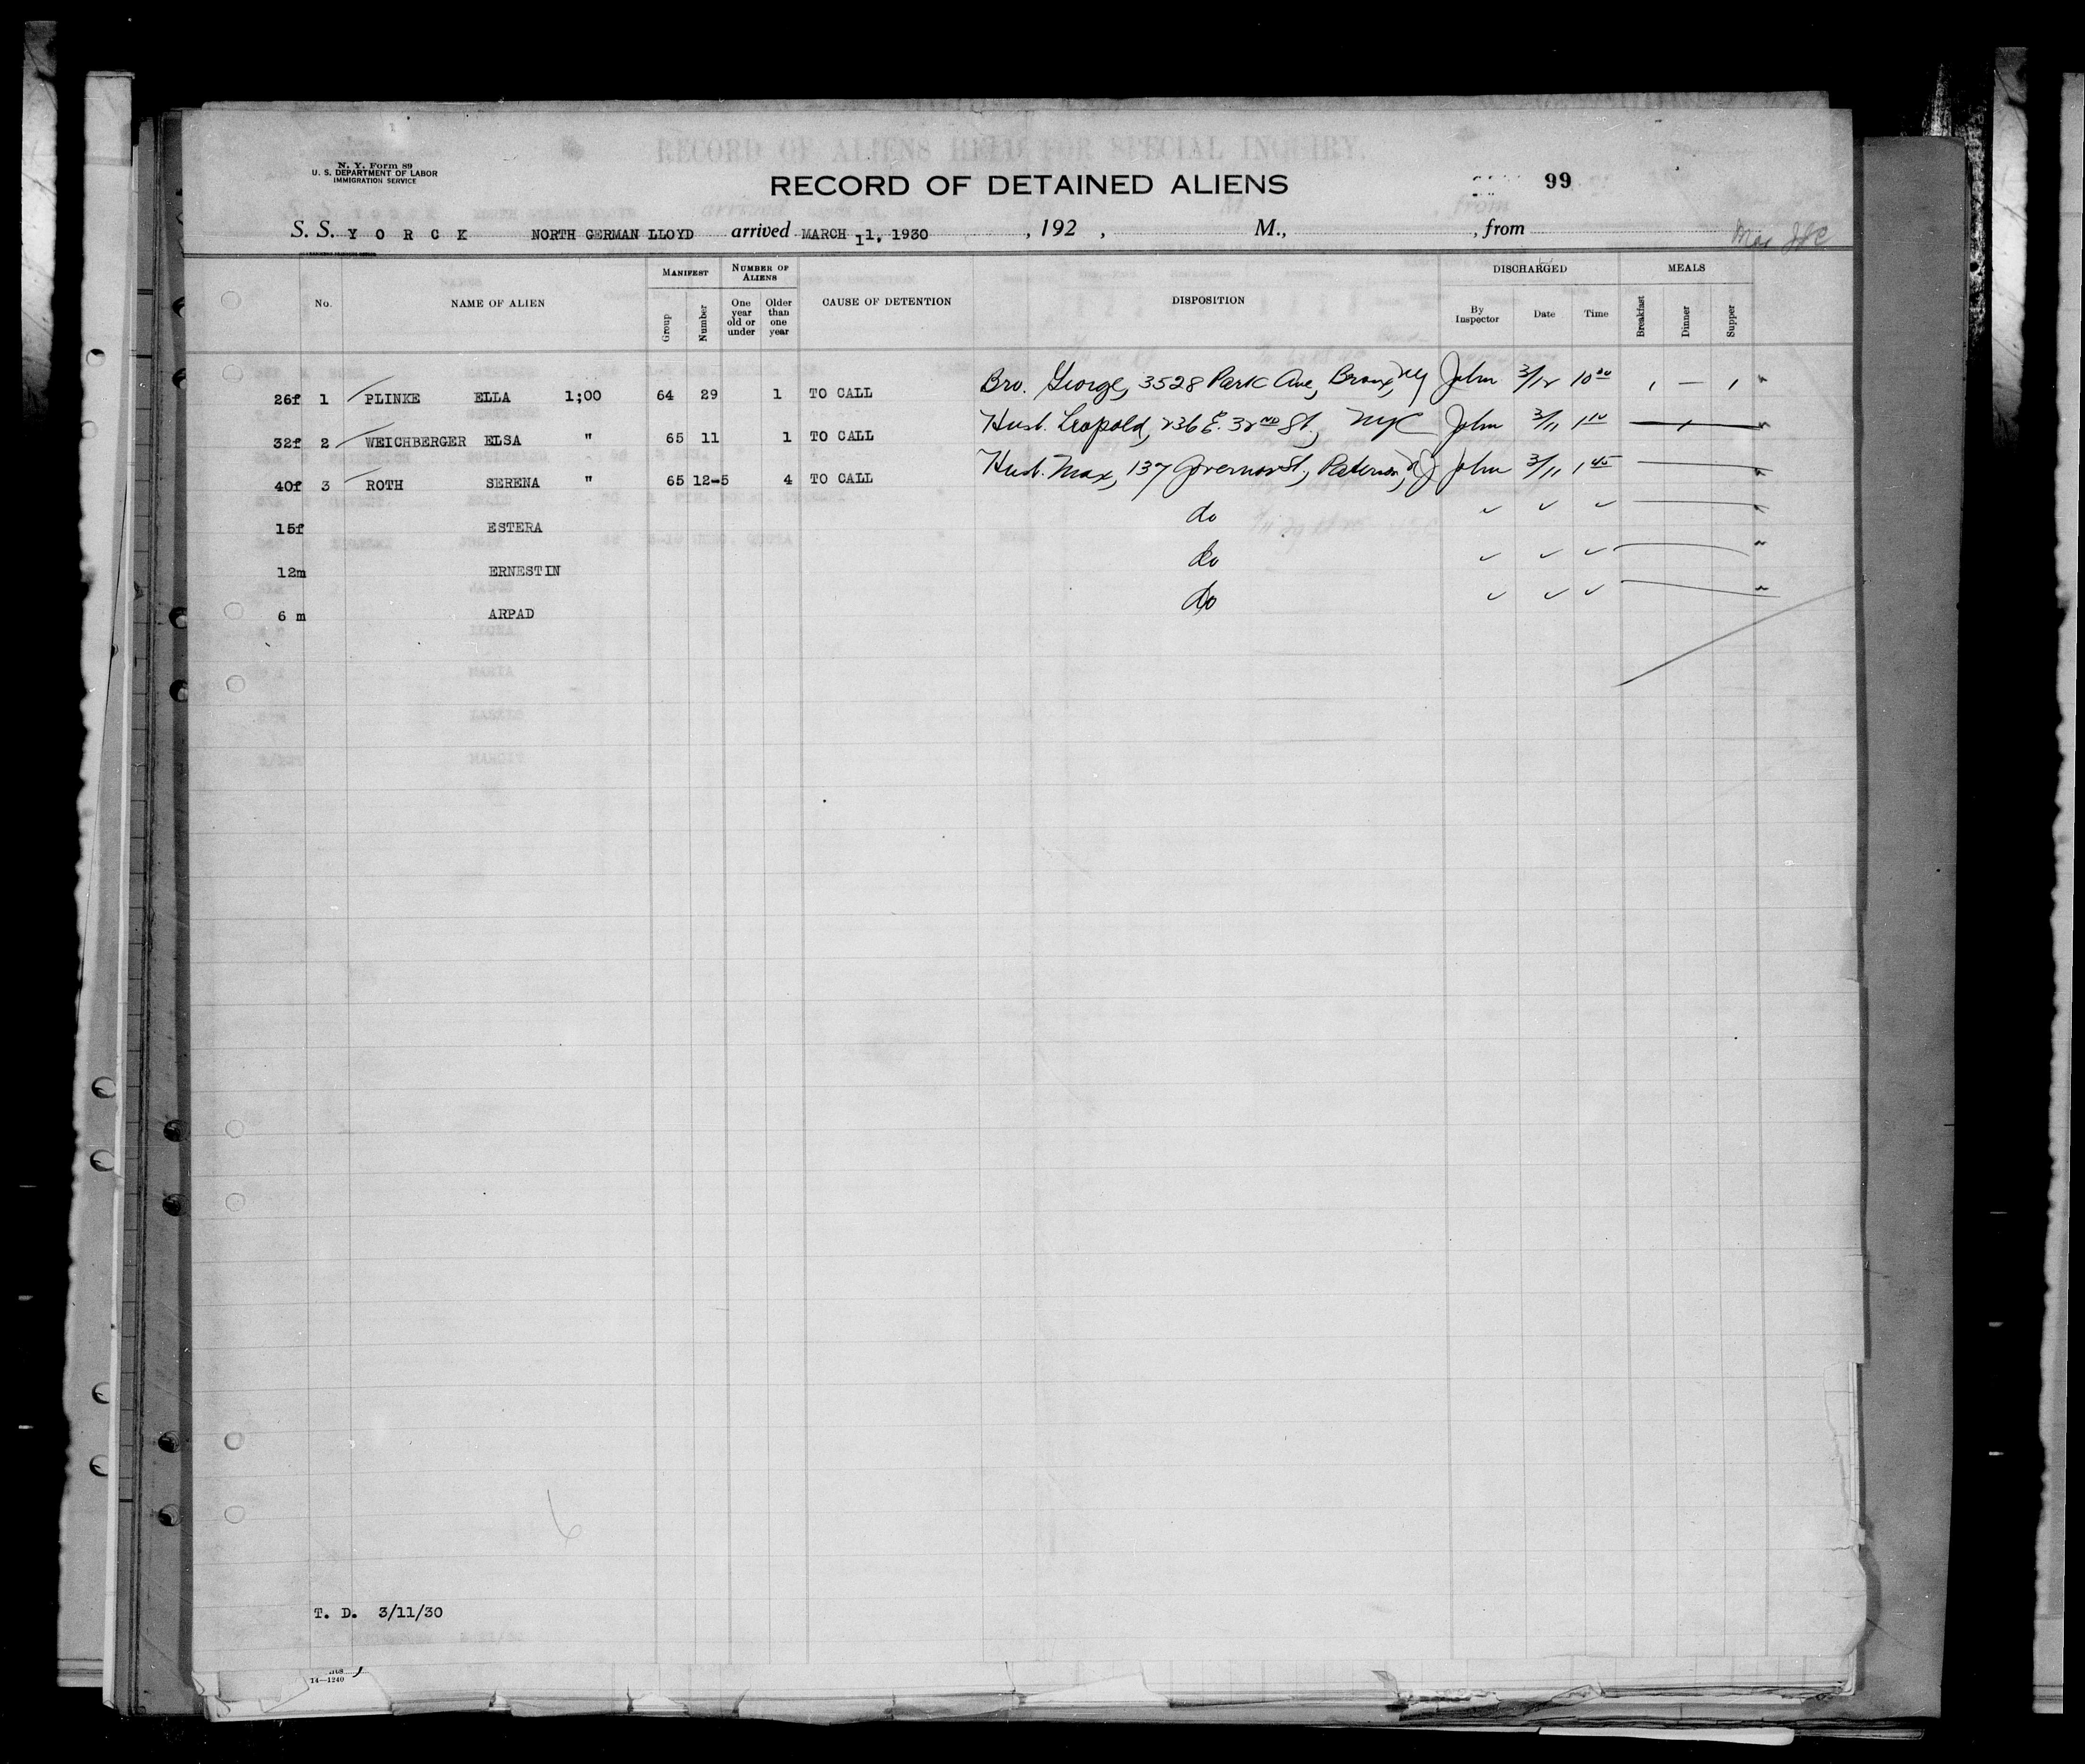 N. Y. Form 89
U. S. DEPARTMENT OF LABOR
IMMIGRATION SERVICE
RECORD OF ALIENS HELD FOR SPECIAL INQUIRY.
RECORD OF DETAINED ALIENS
99
S. S. Y O R C K NORTH GERMAN LLOYD arrived MARCH 11, 1930 , 192 , M., , from
No. NAME OF ALIEN MANIFEST Group Number NUMBER OF ALIENS One year old or under Older than one year CAUSE OF DETENTION DISPOSITION DISCHARGED By Inspector Date Time MEALS Breakfast Dinner Supper
26f 1 PLINKE ELLA 1;00 64 29 1 TO CALL Bro. George, 3528 Park Ave, Bronx, NY John 3/12 10 00 1 — 1
32f 2 WEICHBERGER ELSA " 65 11 1 TO CALL Husb. Leopold, 236 E. 32nd St., NYC John 3/11 1 10
40f 3 ROTH SERENA " 65 12-5 4 TO CALL Husb. Max, 137 Governor St., Paterson, NJ John 3/11 1 45
15f ESTERA do
12m ERNESTIN do
6 m ARPAD do
6
T. D. 3/11/30
14—1240